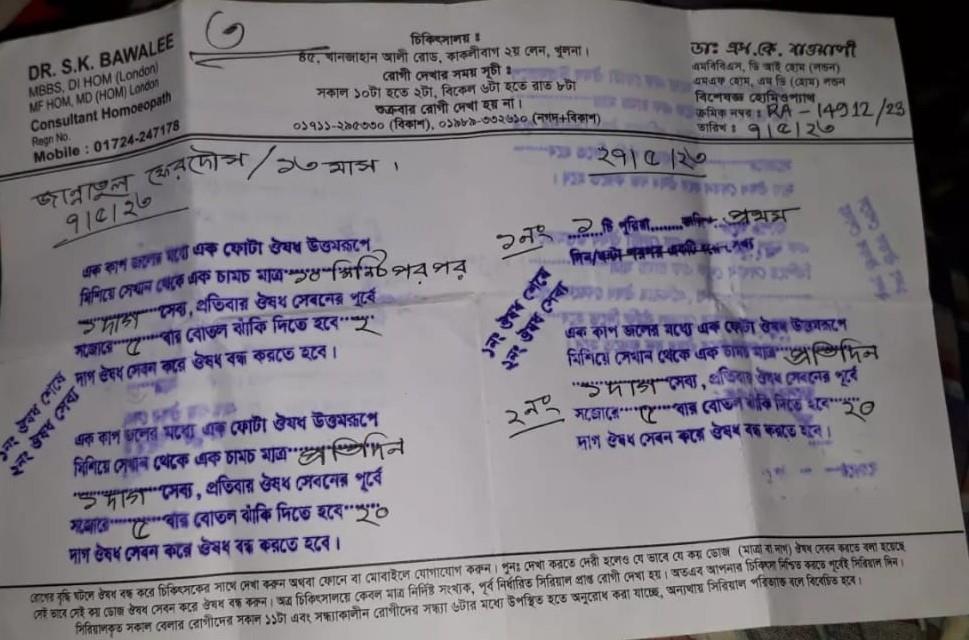 DR. S.K. BAWALEE
MBBS, DI HOM (London)
MF HOM, MD (HOM) London
Consultant Homoeopath
Regn No.
Mobile : 01724-247178
চিকিৎসালয় :
৪৫, খানজাহান আলী রোড, কাকলীবাগ ২য় লেন, খুলনা।
রোগী দেখার সময় সূচী :
সকাল ১০টা হতে ২টা, বিকেল ৬টা হতে রাত ৮টা
শুক্রবার রোগী দেখা হয় না।
০১৭১১-২৯৫৩৩০ (বিকাশ), ০১৯৮৯-৩৩২৬১০ (নগদ+বিকাশ)
ডাঃ এস.কে. বাওয়ালী
এমবিবিএস, ডি আই হোম (লন্ডন)
এমএফ হোম, এম ডি (হোম) লন্ডন
বিশেষজ্ঞ হোমিওপ্যাথ
ক্রমিক নম্বর : RA - 14912/23
তারিখ : ৭/৫/২৩
জান্নাতুল ফেরদৌস / ১৩ মাস।
৭/৫/২৩
এক কাপ জলের মধ্যে এক ফোটা ঔষধ উত্তমরূপে
মিশিয়ে সেখান থেকে এক চামচ মাত্র ১৫ মিনিট পর পর
১ দাগ সেব্য, প্রতিবার ঔষধ সেবনের পূর্বে
সজোরে ৫ বার বোতল ঝাঁকি দিতে হবে ২
দাগ ঔষধ সেবন করে ঔষধ বন্ধ করতে হবে।
১নং ঔষধ শেষে
২নং ঔষধ সেব্য
এক কাপ জলের মধ্যে এক ফোটা ঔষধ উত্তমরূপে
মিশিয়ে সেখান থেকে এক চামচ মাত্র প্রতিদিন
১ দাগ সেব্য, প্রতিবার ঔষধ সেবনের পূর্বে
সজোরে ৫ বার বোতল ঝাঁকি দিতে হবে ২০
দাগ ঔষধ সেবন করে ঔষধ বন্ধ করতে হবে।
২৭/৫/২৩
১নং ১ টি পুরিয়া প্রথম
১নং ঔষধ শেষে
২নং ঔষধ সেব্য
২নং
এক কাপ জলের মধ্যে এক ফোটা ঔষধ উত্তমরূপে
মিশিয়ে সেখান থেকে এক চামচ মাত্র প্রতিদিন
১ দাগ সেব্য, প্রতিবার ঔষধ সেবনের পূর্বে
সজোরে ৫ বার বোতল ঝাঁকি দিতে হবে ২০
দাগ ঔষধ সেবন করে ঔষধ বন্ধ করতে হবে।
রোগের বৃদ্ধি ঘটলে ঔষধ বন্ধ করে চিকিৎসকের সাথে দেখা করুন অথবা ফোনে বা মোবাইলে যোগাযোগ করুন। পুনঃ দেখা করতে দেরী হলেও যে ভাবে যে কয় ডোজ (মাত্রা বা দাগ) ঔষধ সেবন করতে বলা হয়েছে
সেই ভাবে সেই কয় ডোজ ঔষধ সেবন করে ঔষধ বন্ধ করুন। অত্র চিকিৎসালয়ে কেবল মাত্র নির্দিষ্ট সংখ্যক, পূর্ব নির্ধারিত সিরিয়াল প্রাপ্ত রোগী দেখা হয়। অতএব আপনার চিকিৎসা নিশ্চিত করতে পূর্বেই সিরিয়াল নিন।
সিরিয়ালকৃত সকাল বেলার রোগীদের সকাল ১১টা এবং সন্ধ্যাকালীন রোগীদের সন্ধ্যা ৬টার মধ্যে উপস্থিত হতে অনুরোধ করা যাচ্ছে, অন্যথায় সিরিয়াল পরিত্যক্ত বলে বিবেচিত হবে।